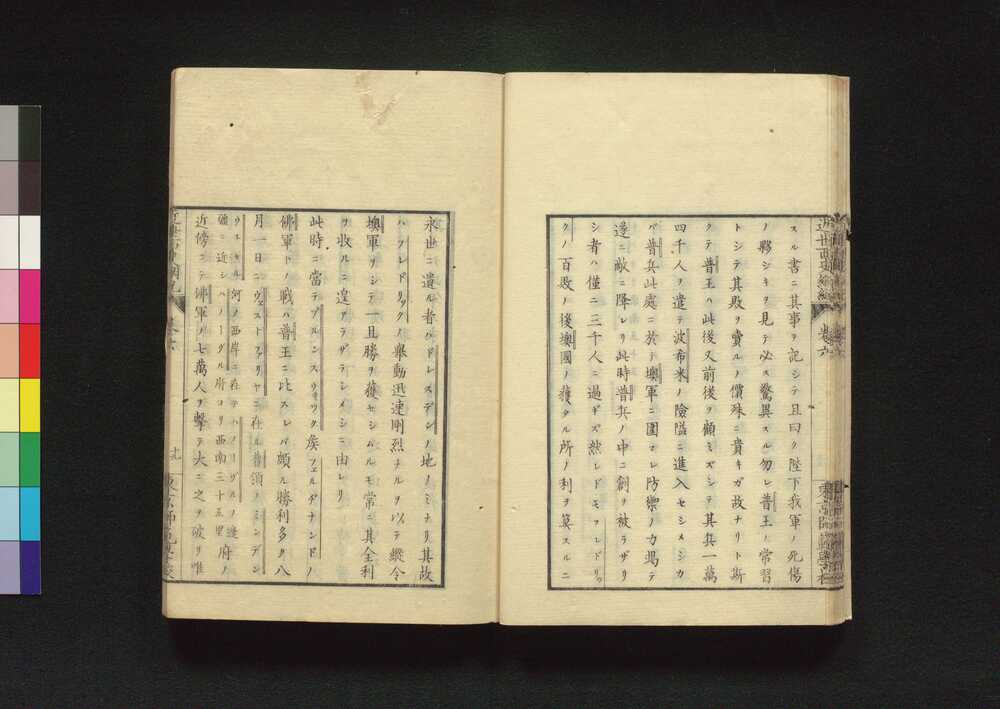 スル書ニ其事ヲ記シテ且曰ク陛下我軍ノ死傷
ノ夥シキヲ見テ必ス驚異スル勿レ普王ノ常習
トシテ其敗ヲ賣ルノ價殊ニ貴キガ故ナリト斯
クテ普王ハ此後又前後ヲ顧ミズシテ其兵一萬
四千人ヲ遣テ波布米ノ險隘ニ進入セシメシカ
バ普兵此處ニ於テ墺軍ニ圍マレ防禦ノ力竭テ
遂ニ敵ニ降レリ此時普兵ノ中ニ創ヲ被ラザリ
シ者ハ僅ニ三千人ニ過ギズ然レドモフレドリッ
クノ百敗ノ後墺國ノ獲タル所ノ利ヲ算スルニ
永世ニ遺ル者ハドレスデンノ地ノミナリ其故
ハフレドリックノ舉動迅速剛烈ナルヲ以テ縱令
墺軍ヲシテ一且勝ヲ獲セシムルモ常ニ其全利
ヲ收ルニ遑アラザラシメシニ由レリ
此時ニ當テブルンスウヰック矦フェルヂナンドノ
佛軍トノ戰ハ普王ニ比スレバ頗ル勝利多ク八
月一日ニウェストファリヤニ在ル普領ノミンデン
河ノ西岸ニ在テハノーヴルノ邊府ノ
近シハノーヴル府ヨリ西南三十五里
近傍ニテ佛軍八七萬人ヲ擊テ大ニ之ヲ破リ唯
近世西史綱紀
卷六